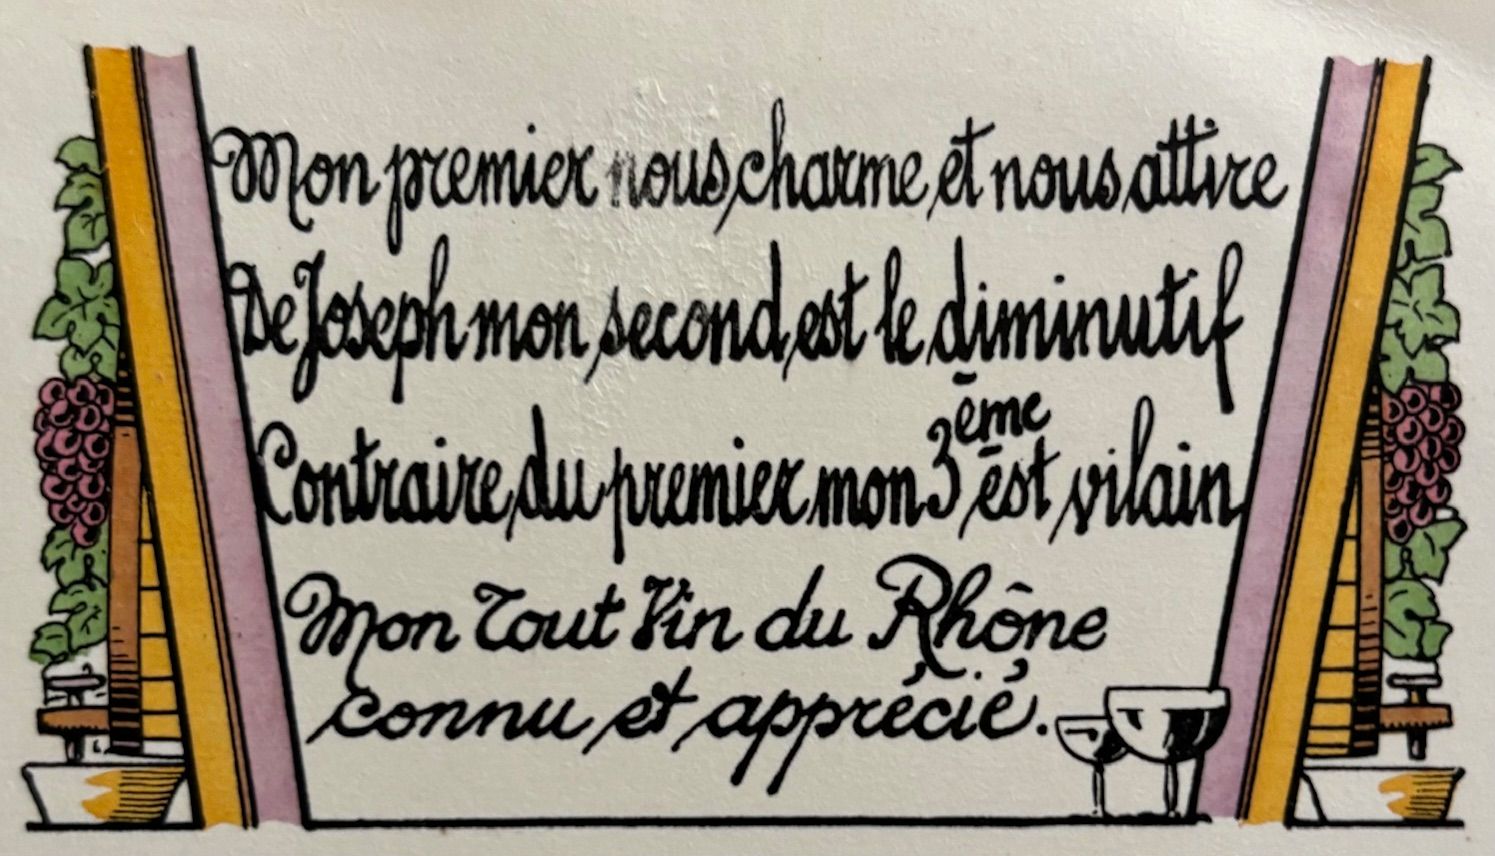 Mon premier nous charme et nous attire
De Joseph mon second est le diminutif
Contraire du premier mon 3ème est vilain
Mon Tout Vin du Rhône
connu et apprécié.